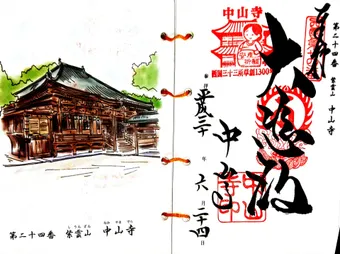 第二十四番 紫雲山 中山寺
しうんざん
なかやまでら
中山寺
西国三十三所草創1300年
奉拝
第二十四番 紫雲山 中山寺
大悲殿
中山寺
平成三十年六月二十四日